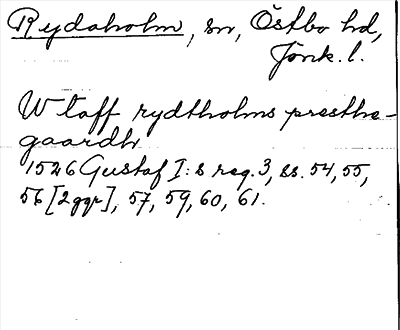 Rydaholm, sn, Östbo hd,
Jönk. l.
W taff rydtholms presthe-
gaardh
1526 Gustaf I:s reg. 3, ss. 54, 55,
56 [2 ggr], 57, 59, 60, 61.